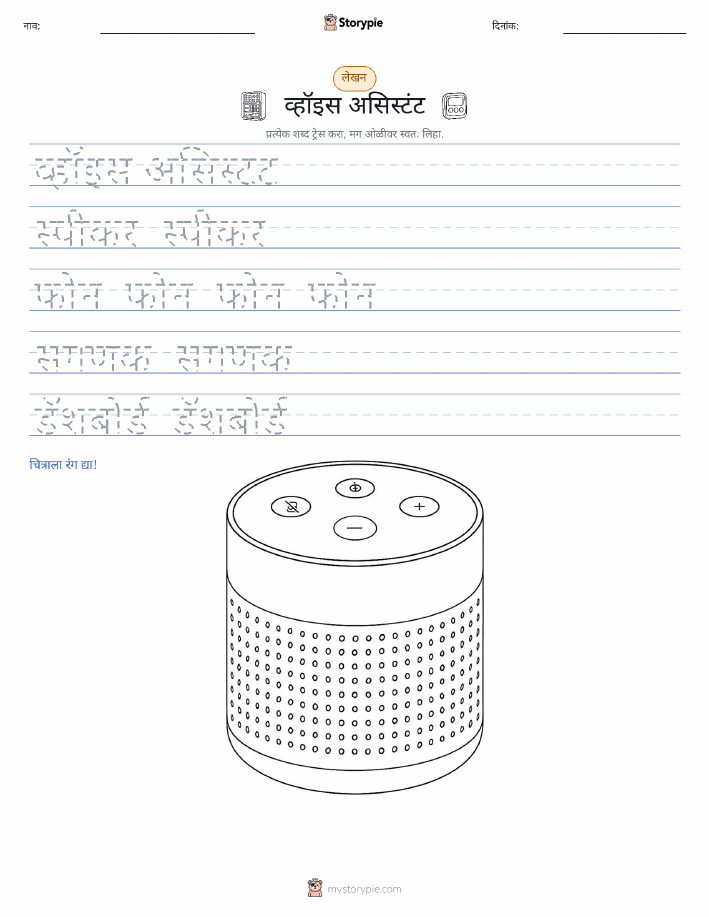 नाव:
Storypie
दिनांक:
लेखन
व्हॉइस असिस्टंट
प्रत्येक शब्द ट्रेस करा, मग ओळीवर स्वतः लिहा.
व्हॉइस असिस्टंट
स्पीकर स्पीकर
फोन फोन फोन फोन
सगणक सगणक
डॅशबोर्ड डॅशबोर्ड
चित्राला रंग द्या!
mystorypie.com